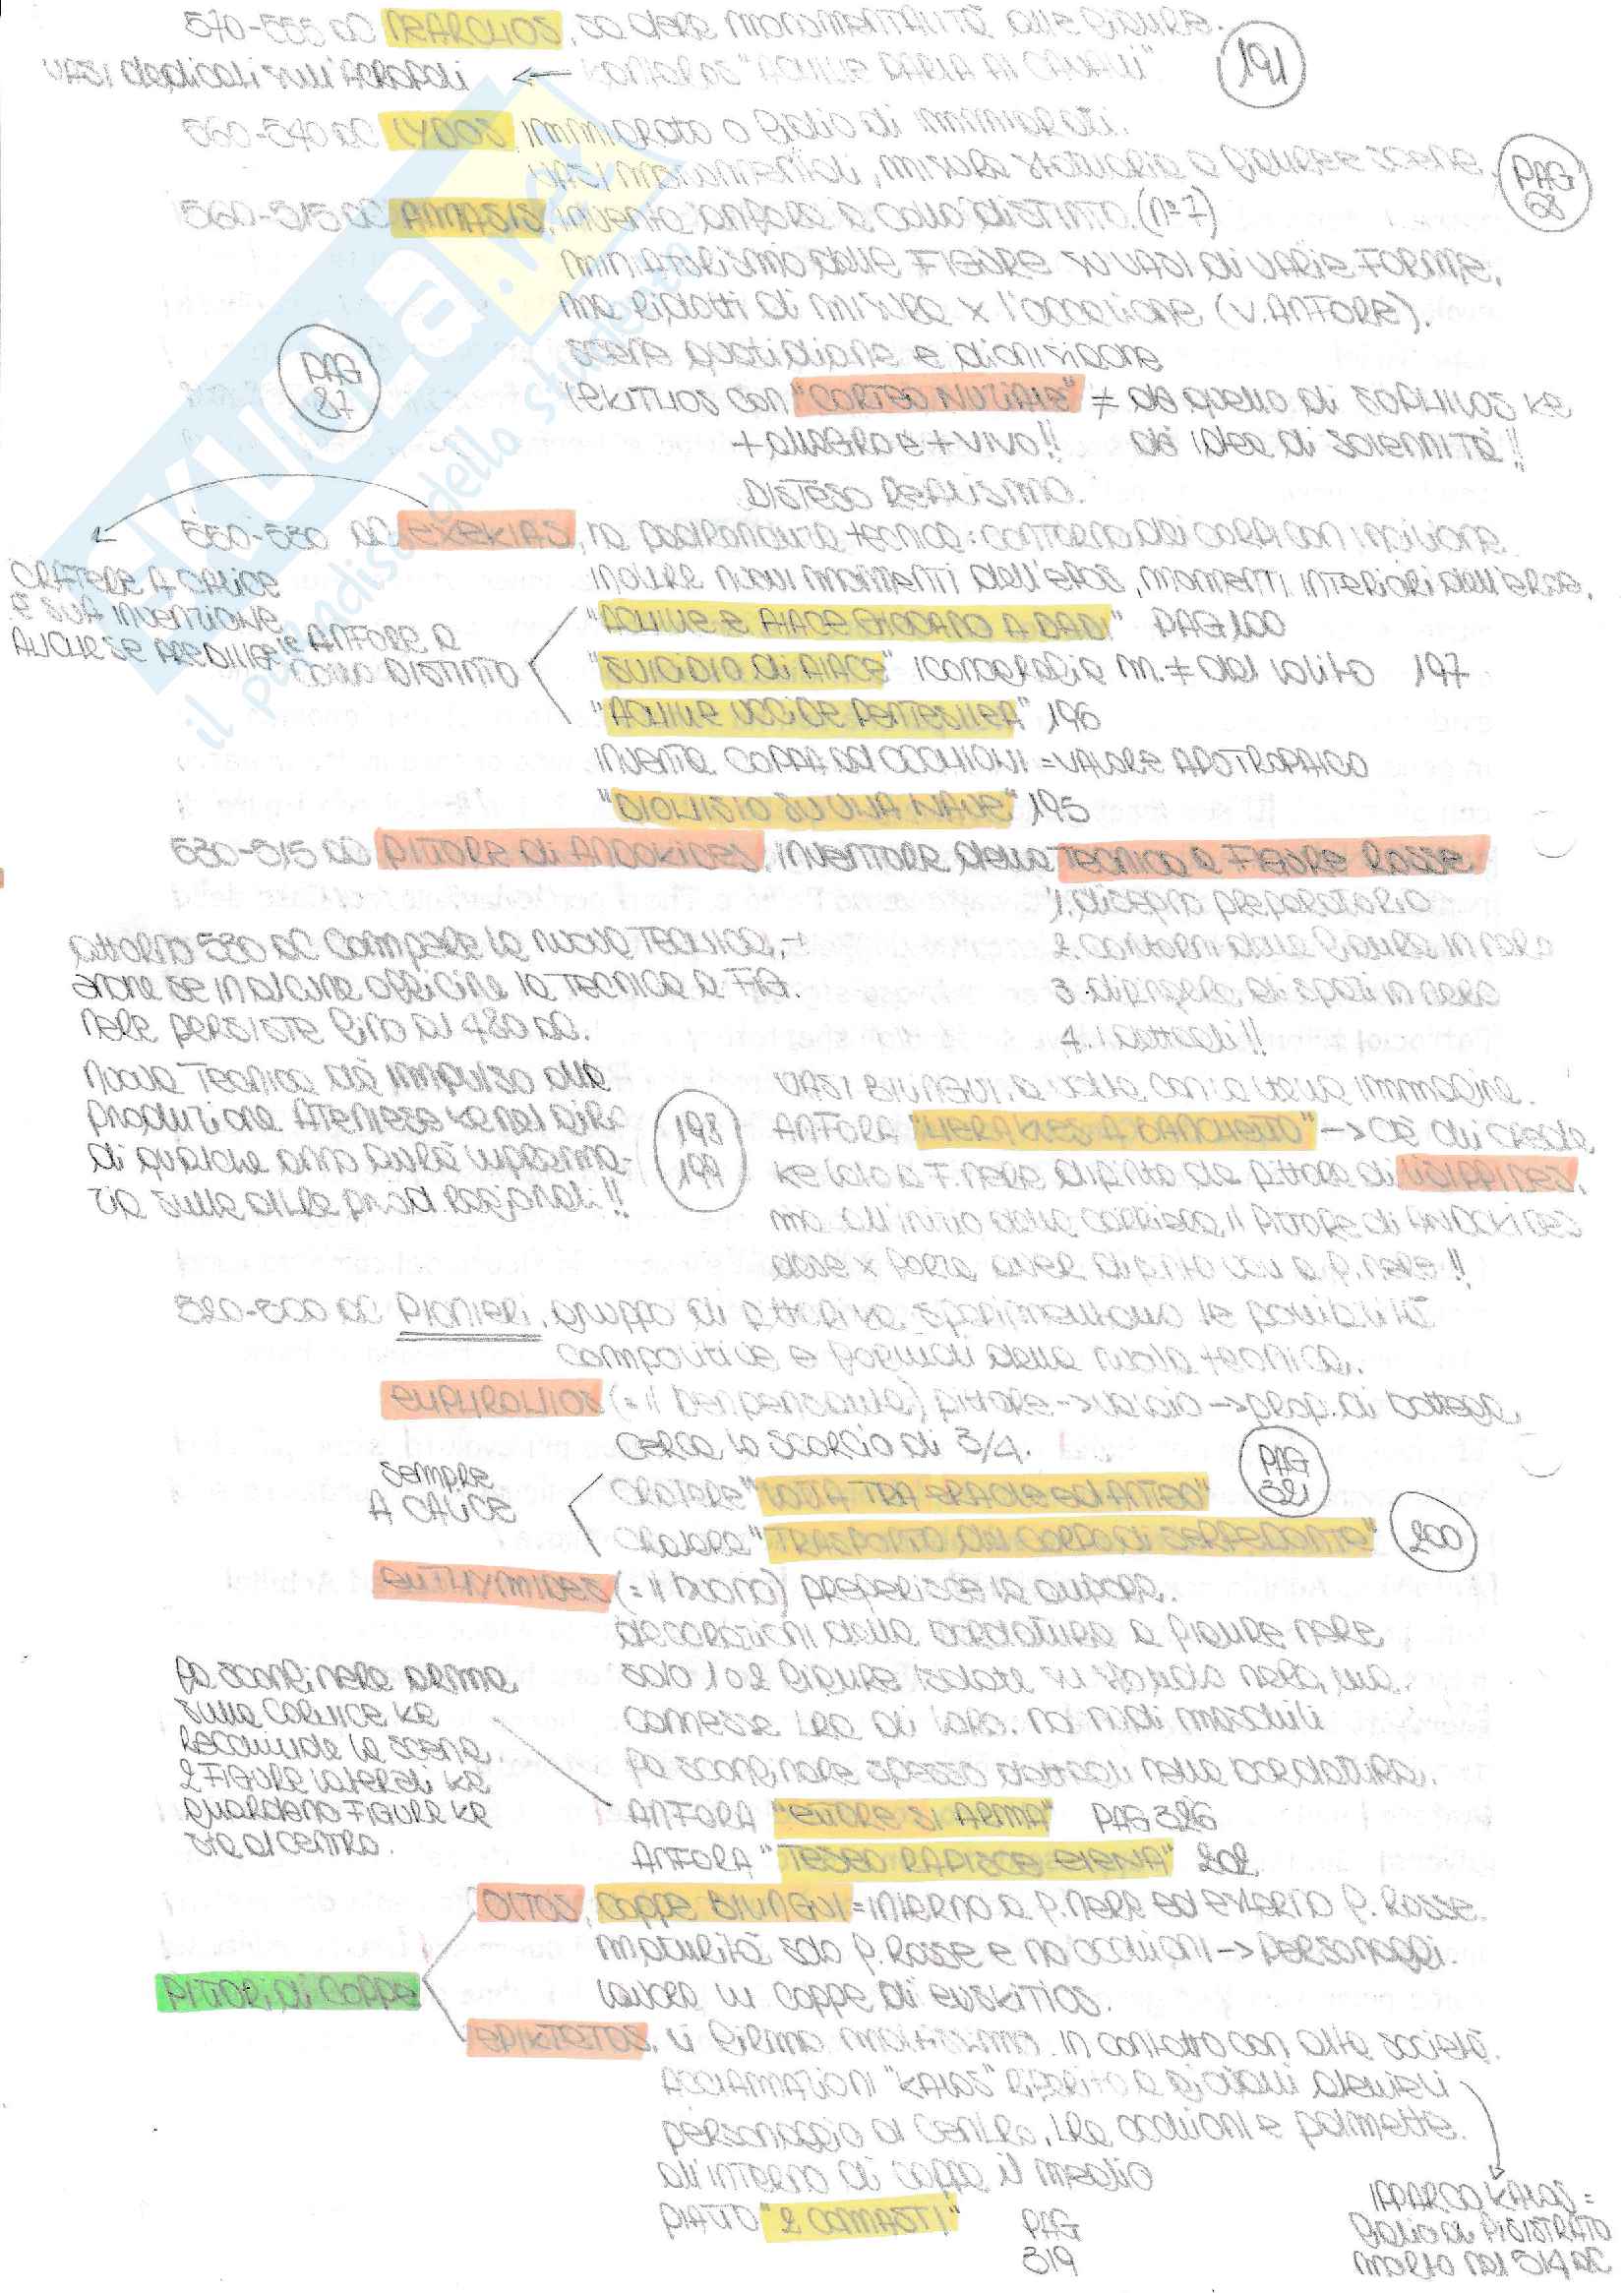 570-555 aC NEARCHOS, sa dare monumentalità alle figure.
vasi dedicati sull'Acropoli ← kantaros "ACHILLE PARLA AI CAVALLI"
191
560-540 aC LYDOS, immigrato o figlio di immigrati.
vasi monumentali, misura statuaria a figure e scene.
PAG 68
560-515 aC AMASIS, inventa anfora a collo distinto. (n°7)
miniaturismo delle FIGURE su vasi di varie FORME,
ma ridotti di misura x l'occasione (v. ANFORE).
scene quotidiane e dionisiache
PAG 87
lekithos con "CORTEO NUZIALE" ≠ da quello di SOPHILOS ke
+ allegra e + viva!! dà idea di solennità!!
DISTESO REALISMO.
550-530 aC EXEKIAS, ha padronanza tecnica: contorno dei corpi con incisione
CRATERE A CALICE
È SUA INVENZIONE
ANCHE SE PREDILIGE ANFORE A
COLLO DISTINTO
include nuovi momenti dell'eros, momenti interiori dell'eroe.
"ACHILLE E AIACE GIOCANO A DADI" PAG 100
"SUICIDIO di AIACE" iconografia m. ≠ dal solito 197
"ACHILLE UCCIDE PENTESILEA" 196
inventa COPPA ad OCCHIONI = VALORE APOTROPAICO
"DIONISIO SU UNA NAVE" 195
530-515 aC PITTORE di ANDOKIDES, inventore della TECNICA a FIGURE ROSSE
1. disegno preparatorio
2. contorni delle figure in nero
3. dipingere gli spazi in nero
4. i dettagli!!
attorno 530 aC compare la nuova TECNICA,
anche se in alcune officine la TECNICA a FIG.
NERE persiste fino al 480 aC.
Nuova Tecnica dà impulso alla
produzione Ateniese ke nel giro
di qualche anno avrà suprema-
zia sulle altre prod. regionali!!
198
199
VASI BILINGUI, a volte con la stessa immagine.
ANFORA "HERAKLES A BANCHETTO" → c'è chi crede
ke lato a F. nere dipinto da pittore di LISIPPIDES,
ma all'inizio della carriera il PITTORE di ANDOKIDES
deve x forza aver dipinto vasi a f. nere!!
320-500 aC PIONIERI, gruppo di pittori ke sperimentano le possibilità
compositive e formali della nuova tecnica.
EUPHRONIOS (= il benpensante) pittore → vasaio → prop. di bottega,
cerca lo scorcio di 3/4.
SEMPRE
A CALICE
CRATERE "LOTTA TRA ERACLE ed ANTEO"
PAG 321
CRATERE "TRASPORTO DEL CORPO di SERPEDONTE"
200
EUTHYMIDES (= il buono) preferisce la anfora.
decorazioni della bordatura a figure nere
solo 1 o 2 figure isolate su sfondo nero, ma
connesse tra di loro. no nudi maschili
fa sconfinare spesso dettagli nella bordatura.
fa sconfinare arma
sulla cornice ke
racchiude la scena.
2 FIGURE laterali ke
guardano FIGURE ke
sta al centro.
ANFORA "ETTORE SI ARMA" PAG 326
ANFORA "TESEO RAPISCE ELENA" 202
PITTORI di COPPE
OLTOS, COPPE BILINGUI = interno a f. nere ed esterno f. rosse.
maturità solo f. rosse e no occhioni → personaggi.
lavora su coppe di euxitios.
EPIKTETOS, si firma moltissimo. In contatto con alta società.
ACCLAMAZIONI "KALOS" riferito a giovani ateniesi
personaggio al centro, tra occhioni e palmette.
all'interno di coppa il meglio
PIATTO "2 COMASTI"
PAG
319
IPPARCO KALOS =
figlio di PISISTRATO
morto nel 514 aC
SKUOLA.net
il paradiso dello studente